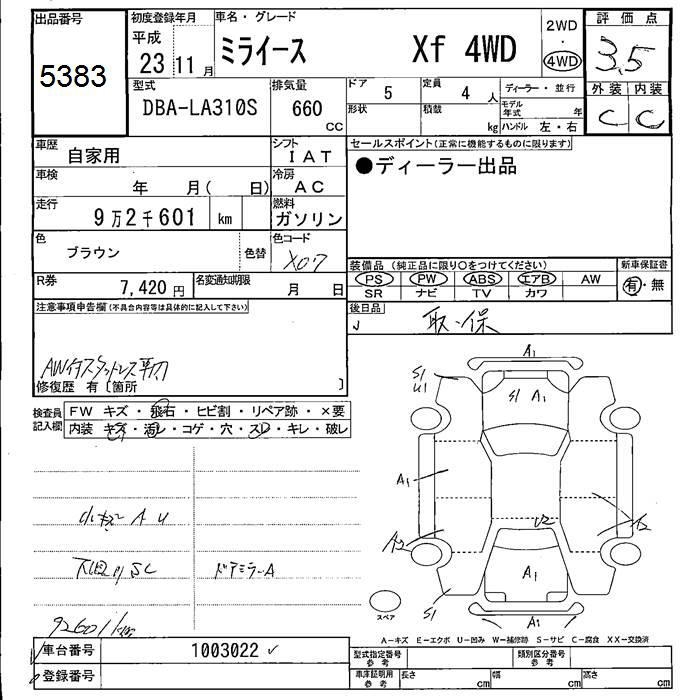 出品番号 初度登録年月 車名・グレード 評価点
5383 平成 23 11月 ミライース Xf 4WD 2WD 4WD 3.5
型式 排気量 ドア 5 定員 4人 ディーラー・並行 外装 内装
DBA-LA310S 660 cc 形状 積載 kg モデル年式 年 ハンドル 左・右 C C
車歴 自家用 シフト IAT セールスポイント(正常に機能するものに限ります)
車検 年 月( 日) 冷房 AC ●ディーラー出品
走行 9万2千601 km 燃料 ガソリン
色 ブラウン 色替 色コード X07
装備品(純正品に限り○をつけてください) 新車保証書
R券 7,420円 名変通知期限 月 日 PS PW ABS エアB AW 有・無
SR ナビ TV カワ
注意事項申告欄(不具合内容等は具体的に記入して下さい) 後日品
J 取・保
修復歴 有〔箇所 〕
検査員記入欄 FW キズ・飛石・ヒビ割・リペア跡・×要
内装 キズ・汚レ・コゲ・穴・スレ・キレ・破レ
A1
S1 U1 S1 A1
A1
小キズ A U U2
A2 A2
下廻り SC ドアミラーA A1
S1 A1
スペア
92601km
A-キズ E-エクボ U-凹み W-補修跡 S-サビ C-腐食 XX-交換済
車台番号 1003022 型式指定番号 参考 類別区分番号 参考
登録番号 車庫証明用 参考 長さ cm 幅 cm 高さ cm